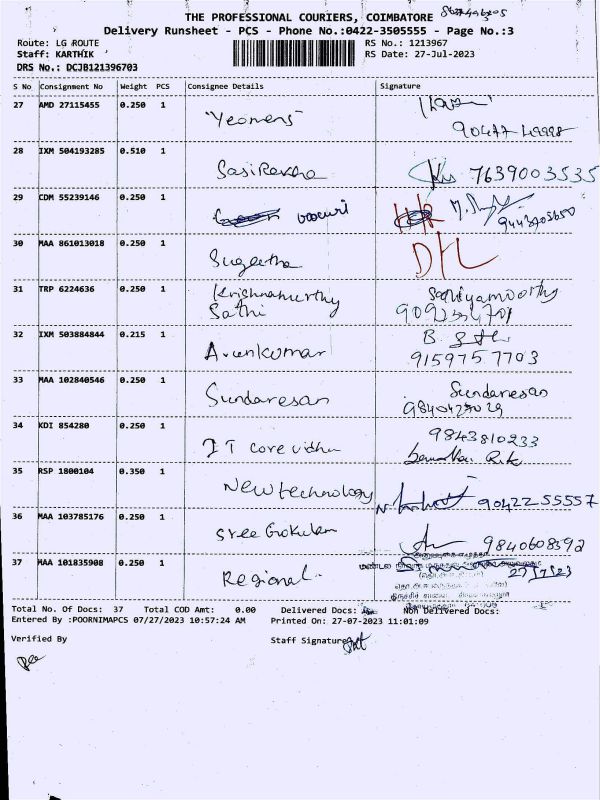 THE PROFESSIONAL COURIERS, COIMBATORE
Delivery Runsheet - PCS - Phone No.:0422-3505555 - Page No.:3
Route: LG ROUTE RS No.: 1213967
Staff: KARTHIK RS Date: 27-Jul-2023
DRS No.: DCJB121396703
S No Consignment No Weight PCS Consignee Details Signature
27 AMD 27115455 0.250 1 "Yeomens"
28 IXM 504193285 0.510 1 SasiRekha 7639003535
29 CDM 55239146 0.250 1
30 MAA 861013018 0.250 1 Sugeetha
31 TRP 6224636 0.250 1 Krishnamurthy Sathiyamoorthy
Sathi
32 IXM 503884844 0.215 1 Arunkumar B.
9159757703
33 MAA 102840546 0.250 1 Sundaresan Sundaresan
34 KDI 854280 0.250 1 IT core 9843810233
35 RSP 1800104 0.350 1 New technology 9042255557
36 MAA 103785176 0.250 1 Sree Gokulam 9840608592
37 MAA 101835908 0.250 1 Regional. 27/7/23
Total No. Of Docs: 37 Total COD Amt: 0.00 Delivered Docs: Non Delivered Docs:
Entered By :POORNIMAPCS 07/27/2023 10:57:24 AM Printed On: 27-07-2023 11:01:09
Verified By Staff Signature